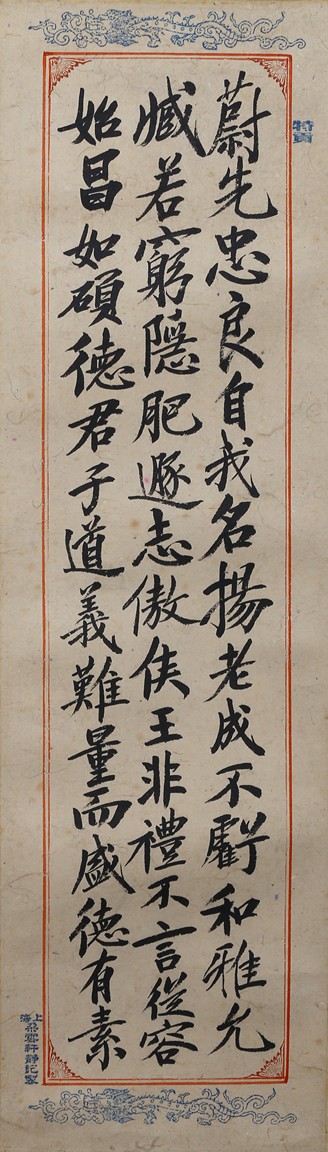 蔚先忠良自我名揚老成不虧和雅允
臧若窮隱肥遯志傲侯王非禮不言從容
始昌如碩德君子道義難量而盛德有素
上海朵雲軒靜記製